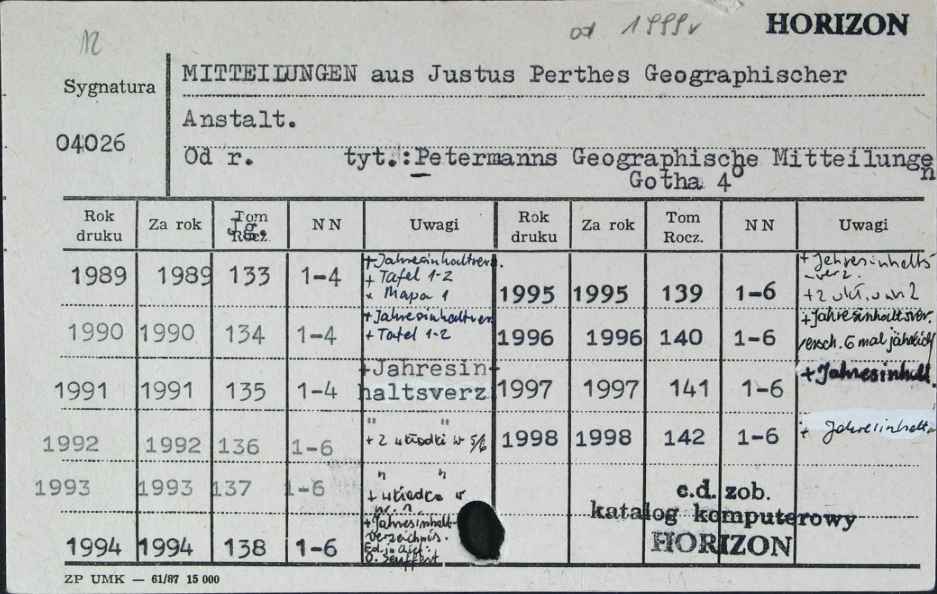 12
od 1999r
HORIZON
Sygnatura
04026
MITTEILUNGEN aus Justus Perthes Geographischer
Anstalt.
Od r. tyt.: Petermanns Geographische Mitteilungen
Gotha 4°
Rok druku Za rok Tom Jg. Rocz. NN Uwagi
1989 1989 133 1-4 +Jahresinhaltverz.
+ Tafel 1-2
+ Mapa 1
1990 1990 134 1-4 +Jahresinhaltverz
+ Tafel 1-2
1991 1991 135 1-4 +Jahresin-
haltsverz
1992 1992 136 1-6 " "
+ 2 wkładki w 5/6
1993 1993 137 1-6 " "
+ wkładka w
nr. 1
1994 1994 138 1-6 +Jahresinhalt-
verzeichnis.
O. Seuffert
Rok druku Za rok Tom Rocz. NN Uwagi
1995 1995 139 1-6 + Jahresinhalts-
verz.
+2 wkł. w nr 2
1996 1996 140 1-6 +Jahresinhaltsver.
ersch. 6 mal jährlich
1997 1997 141 1-6 +Jahresinhalt.
1998 1998 142 1-6 + Jahresinhalts
c.d. zob.
katalog komputerowy
HORIZON
ZP UMK — 61/87 15 000